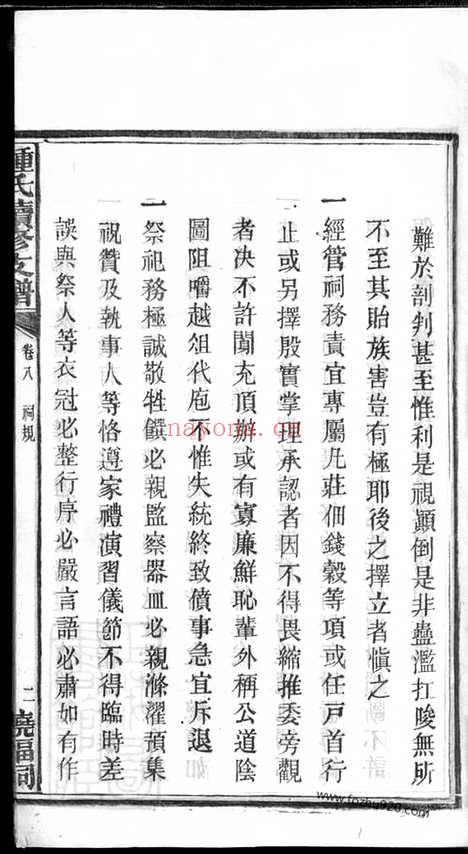 難於剖判甚至惟利是視顚倒是非蠱濫扛唆無所
不至其貽族害豈有極耶後之擇立者愼之
一經管祠務責宜專屬凡莊佃錢穀等項或任戶首行
止或另擇殷實掌理承認者因不得畏縮推委旁觀
者決不許闖充頂辦或有寡廉鮮恥輩外稱公道陰
圖阻嚼越俎代庖不惟失統終致僨事急宜斥退
一祭祀務極誠敬牲饌必親監察器皿必親滌濯預集
祝贊及執事人等恪遵家禮演習儀節不得臨時差
誤與祭人等衣冠必整行序必嚴言語必肅如有作
鍾氏續修支譜
卷八 祠規
二
堯福祠
nayona.cn
www.fozhu920.com